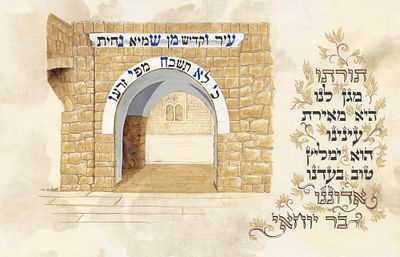 עיר וקדיש מן שמיא נחית
כי לא תשכח מפי זרעו
תורתו
מגן לנו
היא מאירת
עינינו
הוא ימליץ
טוב בעדנו
אדוננו
בר יוחאי